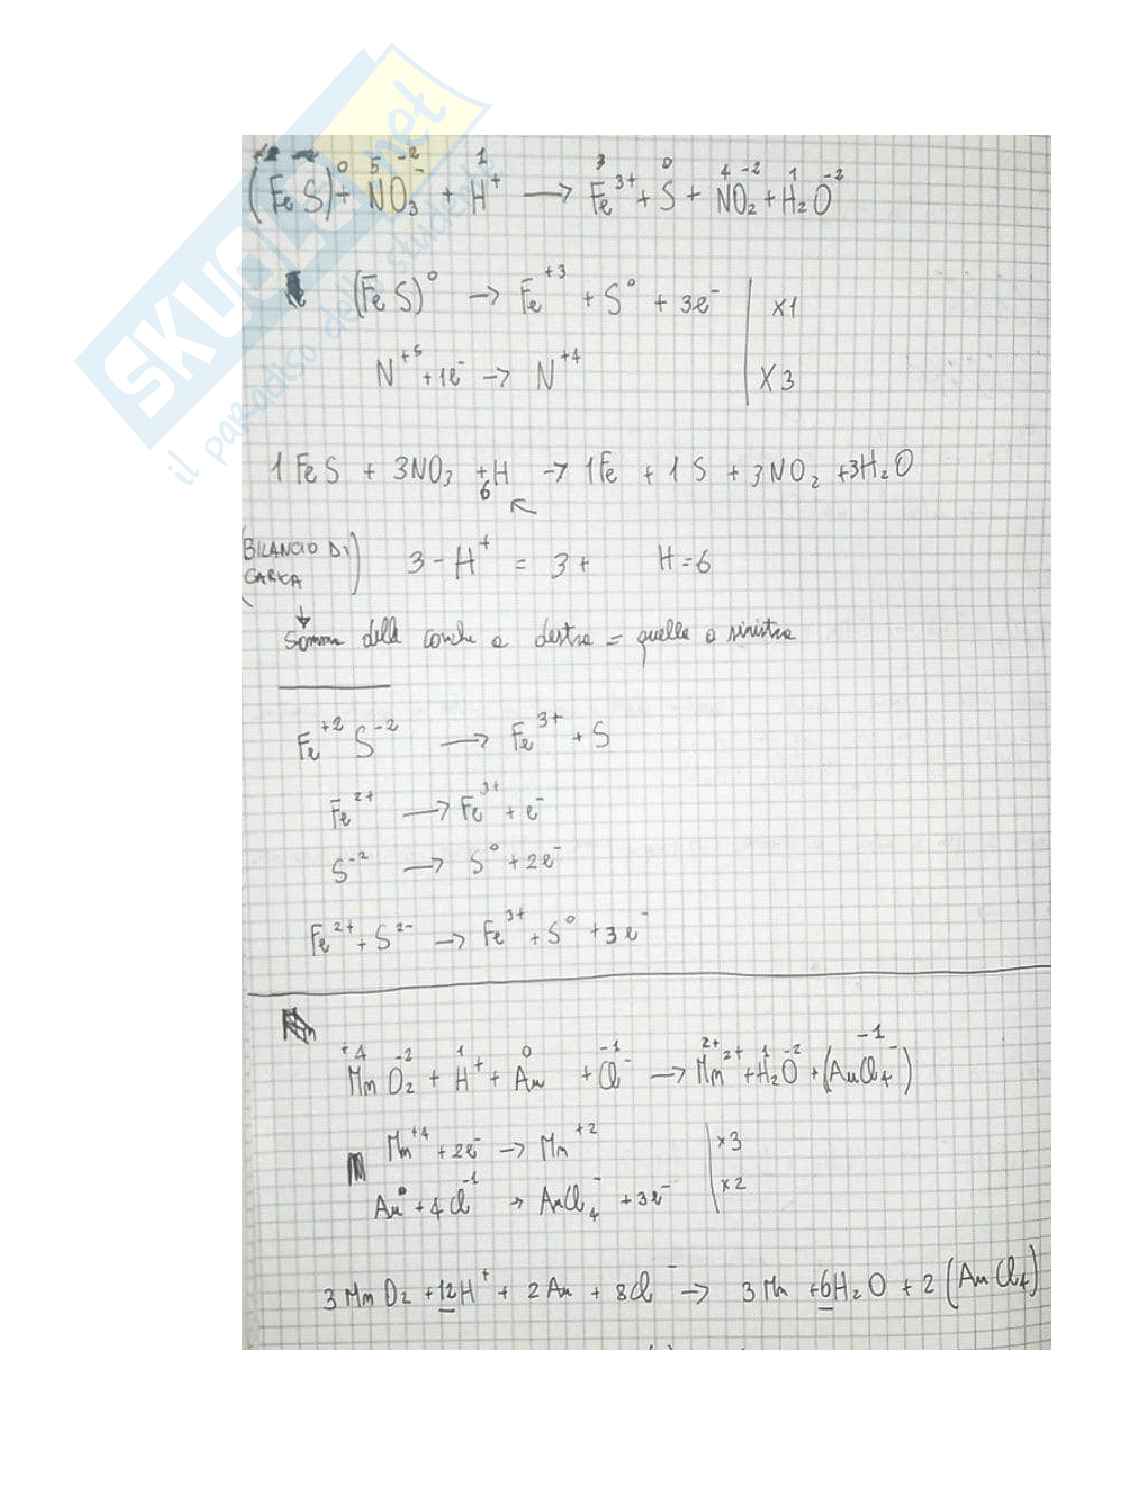 SKUOLA.net
il paradiso dello studente
(FeS)⁰ + NO₃⁻ + H⁺ → Fe³⁺ + S + NO₂ + H₂O
0 5 -2 1 3 0 4 -2 1 -2
(FeS)⁰ → Fe⁺³ + S⁰ + 3e⁻ | x1
N⁺⁵ + 1e⁻ → N⁺⁴ | x3
1 FeS + 3NO₃ + 6H → 1Fe + 1S + 3NO₂ + 3H₂O
(BILANCIO DI CARICA) 3 - H⁺ = 3+ H = 6
Somma delle cariche a destra = quelle a sinistra
Fe⁺² S⁻² → Fe³⁺ + S
Fe²⁺ → Fe³⁺ + e⁻
S⁻² → S⁰ + 2e⁻
Fe²⁺ + S²⁻ → Fe³⁺ + S⁰ + 3e⁻
+4 -2 1 0 -1 2+ 1 -2 -1
MnO₂ + H⁺ + Au + Cl⁻ → Mn²⁺ + H₂O + (AuCl₄⁻)
Mn⁺⁴ + 2e⁻ → Mn⁺² | x3
Au⁰ + 4Cl⁻¹ → AuCl₄⁻ + 3e⁻ | x2
3 MnO₂ + 12H⁺ + 2Au + 8Cl⁻ → 3Mn + 6H₂O + 2(AuCl₄)